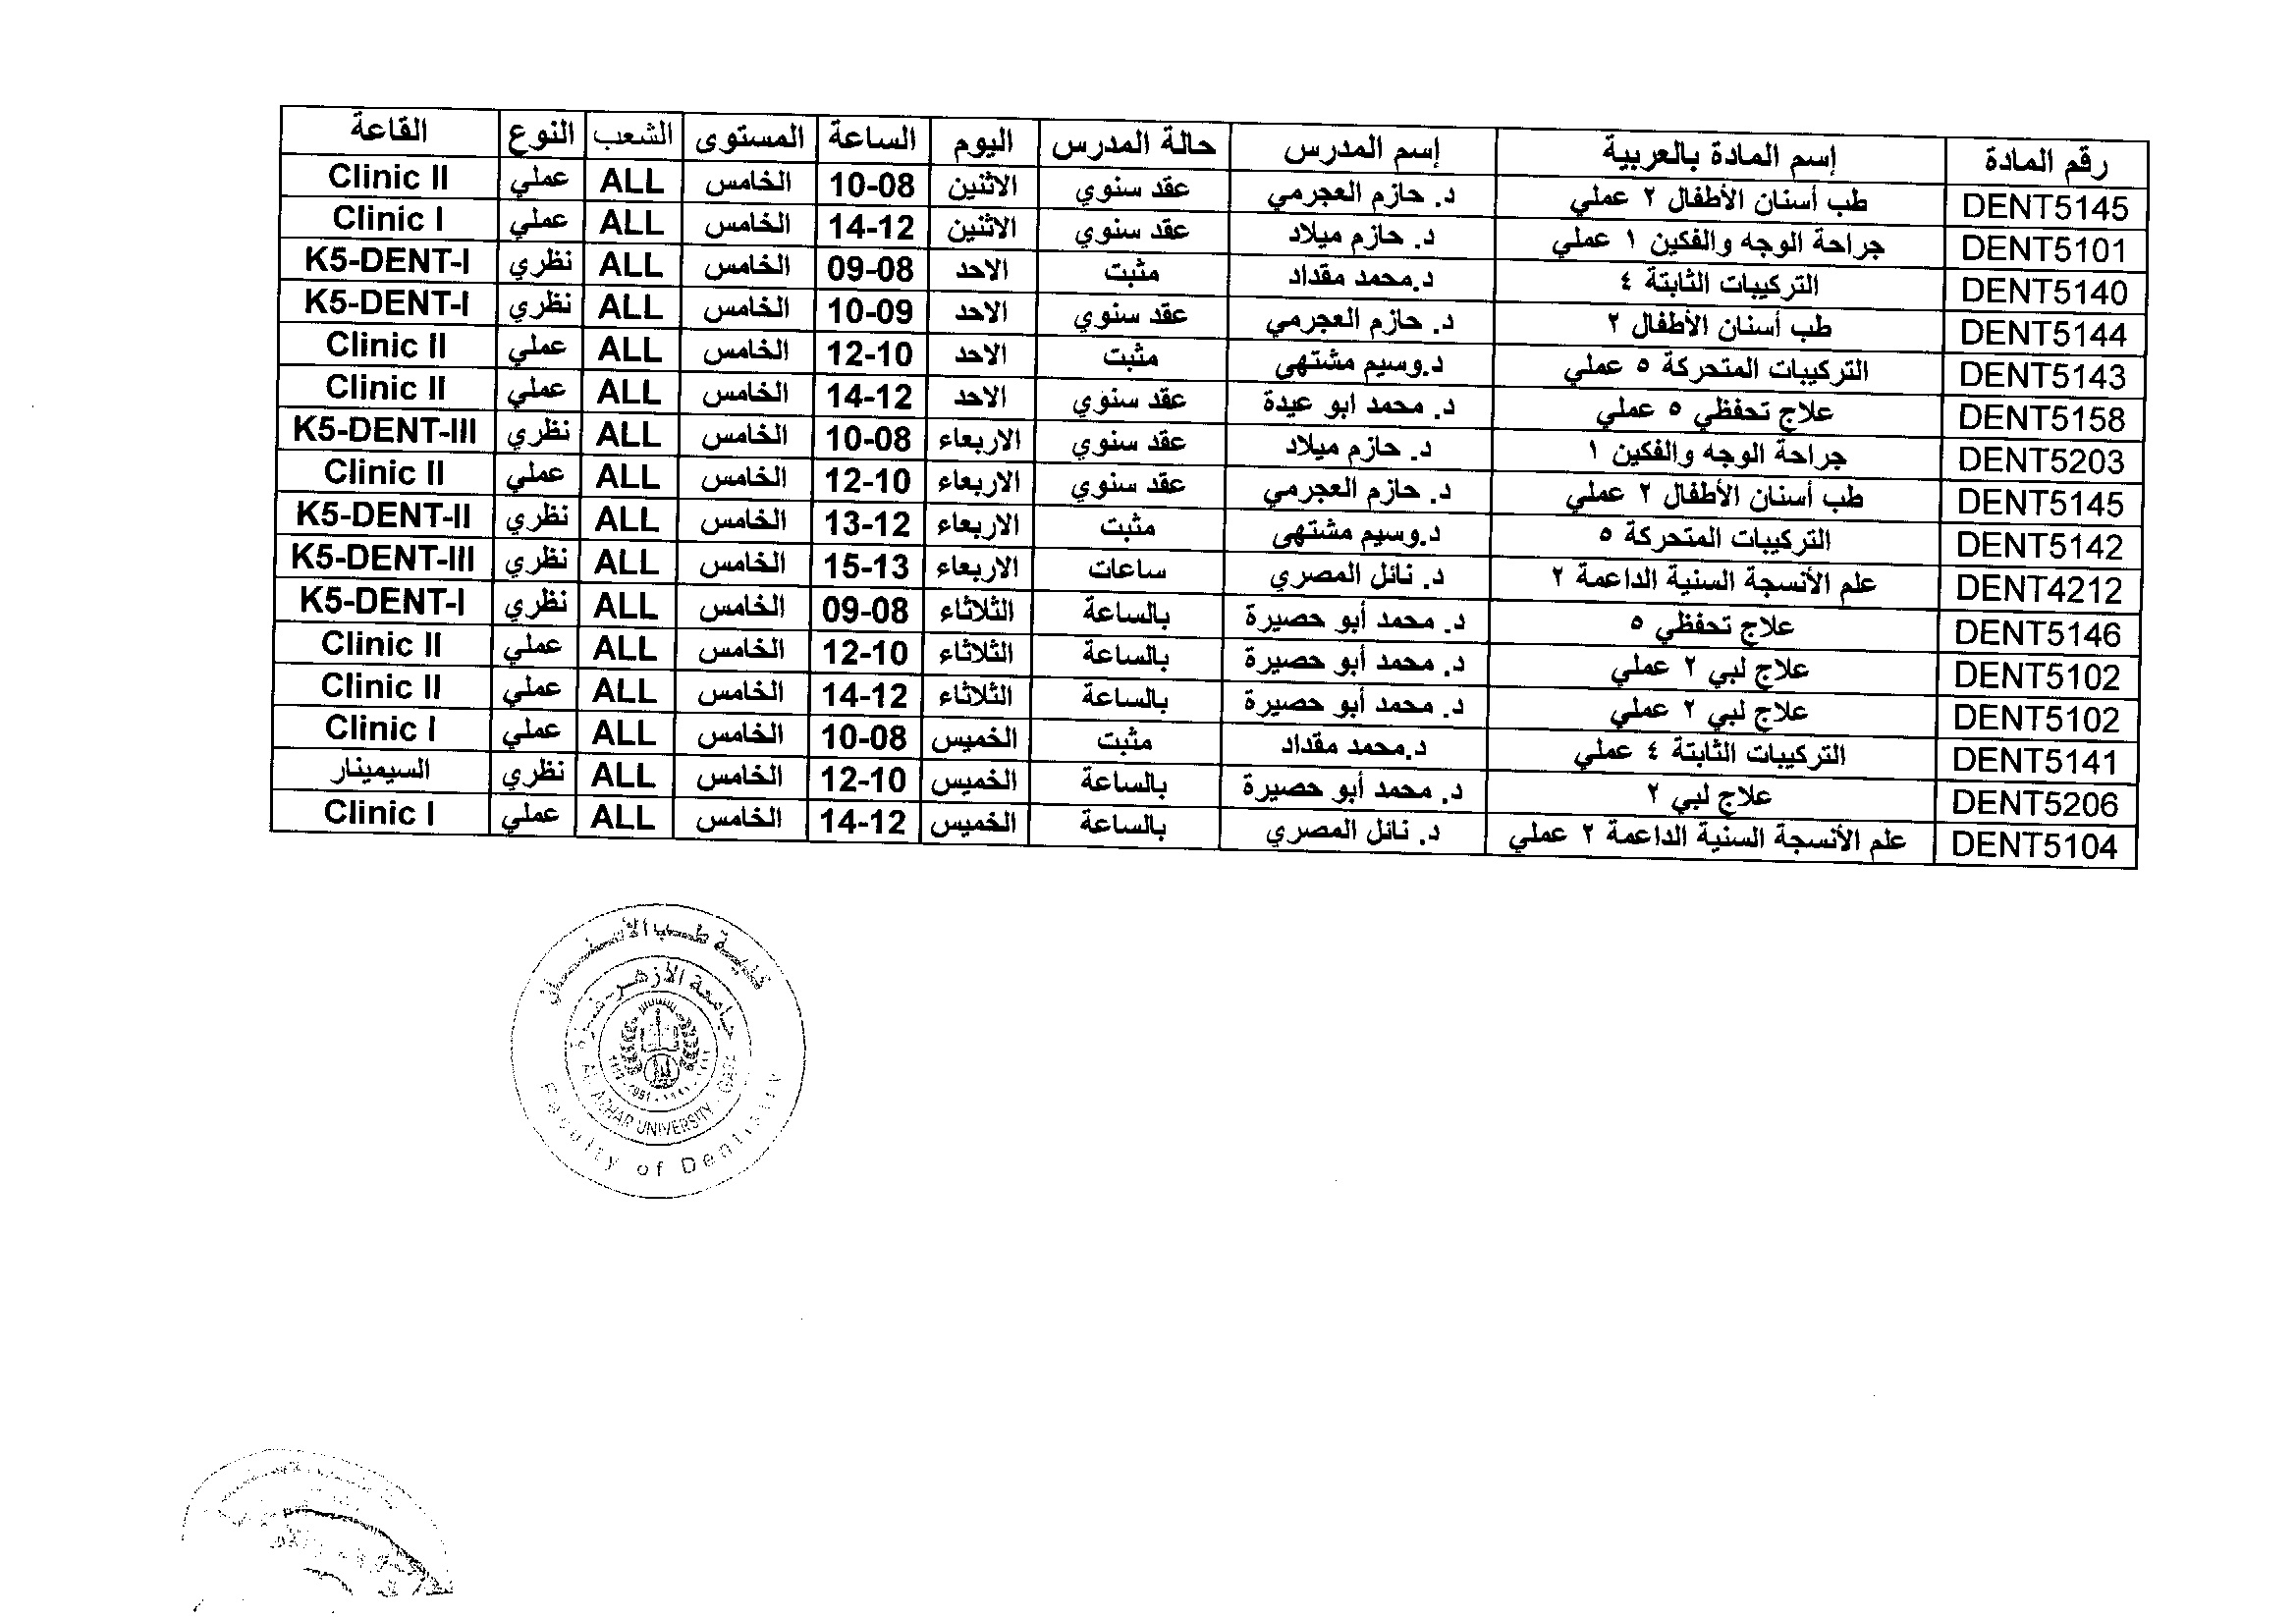 رقم المادة إسم المادة بالعربية إسم المدرس حالة المدرس اليوم الساعة المستوى الشعب النوع القاعة
DENT5145 طب أسنان الأطفال ٢ عملي د. حازم العجرمي عقد سنوي الاثنين 10-08 الخامس ALL عملي Clinic II
DENT5101 جراحة الوجه والفكين ١ عملي د. حازم ميلاد عقد سنوي الاثنين 14-12 الخامس ALL عملي Clinic I
DENT5140 التركيبات الثابتة ٤ د.محمد مقداد مثبت الاحد 09-08 الخامس ALL نظري K5-DENT-I
DENT5144 طب أسنان الأطفال ٢ د. حازم العجرمي عقد سنوي الاحد 10-09 الخامس ALL نظري K5-DENT-I
DENT5143 التركيبات المتحركة ٥ عملي د.وسيم مشتهى مثبت الاحد 12-10 الخامس ALL عملي Clinic II
DENT5158 علاج تحفظي ٥ عملي د. محمد ابو عيدة عقد سنوي الاحد 14-12 الخامس ALL عملي Clinic II
DENT5203 جراحة الوجه والفكين ١ د. حازم ميلاد عقد سنوي الاربعاء 10-08 الخامس ALL نظري K5-DENT-III
DENT5145 طب أسنان الأطفال ٢ عملي د. حازم العجرمي عقد سنوي الاربعاء 12-10 الخامس ALL عملي Clinic II
DENT5142 التركيبات المتحركة ٥ د.وسيم مشتهى مثبت الاربعاء 13-12 الخامس ALL نظري K5-DENT-II
DENT4212 علم الأنسجة السنية الداعمة ٢ د. نائل المصري ساعات الاربعاء 15-13 الخامس ALL نظري K5-DENT-III
DENT5146 علاج تحفظي ٥ د. محمد أبو حصيرة بالساعة الثلاثاء 09-08 الخامس ALL نظري K5-DENT-I
DENT5102 علاج لبي ٢ عملي د. محمد أبو حصيرة بالساعة الثلاثاء 12-10 الخامس ALL عملي Clinic II
DENT5102 علاج لبي ٢ عملي د. محمد أبو حصيرة بالساعة الثلاثاء 14-12 الخامس ALL عملي Clinic II
DENT5141 التركيبات الثابتة ٤ عملي د.محمد مقداد مثبت الخميس 10-08 الخامس ALL عملي Clinic I
DENT5206 علاج لبي ٢ د. محمد أبو حصيرة بالساعة الخميس 12-10 الخامس ALL نظري السيمينار
DENT5104 علم الأنسجة السنية الداعمة ٢ عملي د. نائل المصري بالساعة الخميس 14-12 الخامس ALL عملي Clinic I
كلية طب الأسنان
جامعة الأزهر - غزة
AL AZHAR UNIVERSITY - GAZA
Faculty of Dentistry